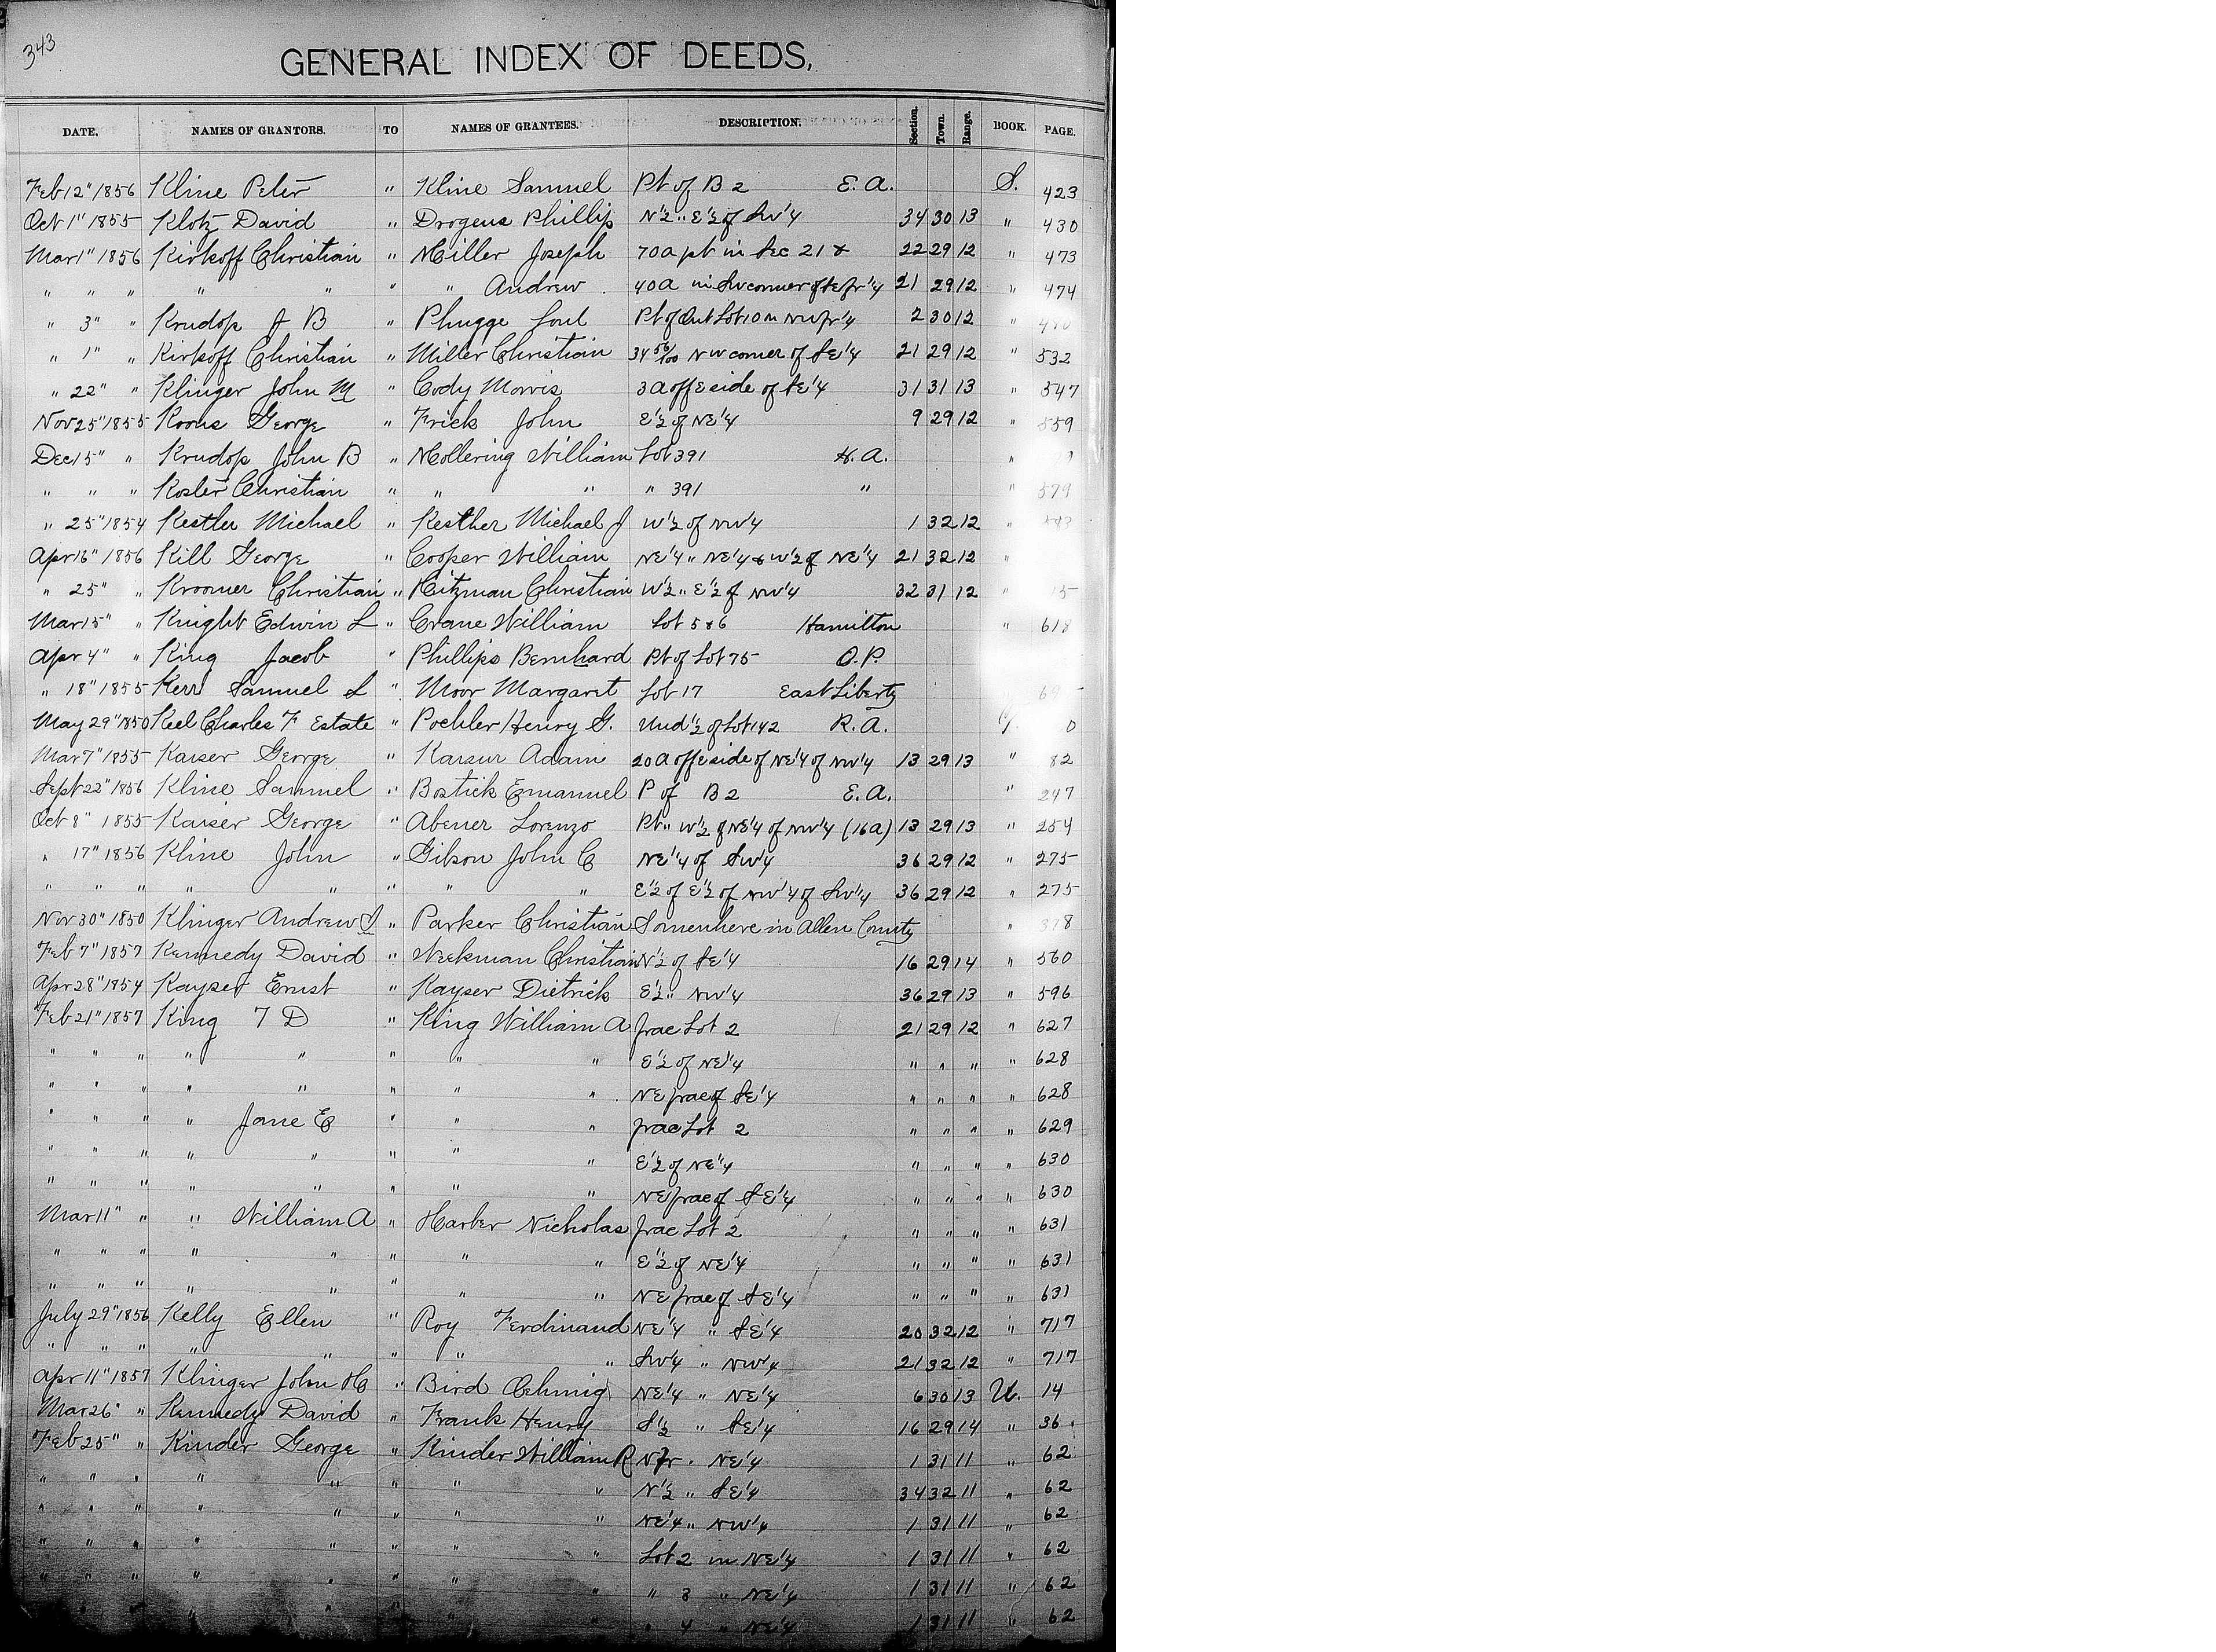 343
GENERAL INDEX OF DEEDS,
DATE. NAMES OF GRANTORS. TO NAMES OF GRANTEES. DESCRIPTION. Section. Town. Range. BOOK. PAGE.
Feb 12" 1856 Kline Peter " Kline Samuel Pt of B 2 E. A. S. 423
Oct 1" 1855 Klotz David " Drogens Phillip N 1/2 " E 1/2 of Sw 1/4 34 30 13 " 430
Mar 1" 1856 Kirkoff Christian " Miller Joseph 70 a pt in Sec 21 & 22 29 12 " 473
" " " " " " " Andrew 40 a in Sw corner of Se fr 1/4 21 29 12 " 474
" 3" " Krudop J B " Phugge Soul Pt of Out Lot 10 in NW fr 1/4 2 30 12 "
" 1" " Kirkoff Christian " Miller Christian 34 56/100 NW corner of SE 1/4 21 29 12 " 532
" 22" " Klinger John M " Cody Morris 3 a off E side of SE 1/4 31 31 13 " 547
Nov 25" 1855 Koons George " Frick John E 1/2 of NE 1/4 9 29 12 " 559
Dec 15" " Krudop John B " Mollering William Lot 391 H. A. "
" " " Koster Christian " " " " 391 " " 579
" 25" 1854 Kestler Michael " Kesther Michael J W 1/2 of NW 1/4 1 32 12 "
Apr 16" 1856 Kill George " Cooper William NE 1/4 " NE 1/4 & W 1/2 of NE 1/4 21 32 12 "
" 25" " Kroomer Christian " Hitzman Christian W 1/2 " E 1/2 of NW 1/4 32 31 12 " 15
Mar 15" " Knight Edwin L " Crane William Lot 5 & 6 Hamilton " 618
Apr 4" " King Jacob " Phillips Bernhard Pt of Lot 75 O. P.
" 18" 1855 Kerr Samuel L " Moor Margaret Lot 17 East Liberty 69
May 29" 1850 Keel Charles F Estate " Poehler Henry G. Und 1/2 of Lot 142 R. A. 0
Mar 7" 1855 Kaiser George " Karsur Adam 20 a off E side of NE 1/4 of NW 1/4 13 29 13 " 82
Sept 22" 1856 Kline Samuel " Bostick Emanuel P of B 2 E. A. " 247
Oct 8" 1855 Kaiser George " Abener Lorenzo Pt " W 1/2 of NE 1/4 of NW 1/4 (16 a) 13 29 13 " 254
" 17" 1856 Kline John " Gibson John C NE 1/4 of SW 1/4 36 29 12 " 275
" " " " " " " " E 1/2 of E 1/2 of NW 1/4 of SW 1/4 36 29 12 " 275
Nov 30" 1850 Klinger Andrew J " Parker Christian Somewhere in Allen County " 378
Feb 7" 1857 Kennedy David " Weekman Christian N 1/2 of SE 1/4 16 29 14 " 560
Apr 28" 1854 Kayser Ernst " Kayser Dietrick E 1/2 " NW 1/4 36 29 13 " 596
Feb 21" 1857 King T D " King William A frac Lot 2 21 29 12 " 627
" " " " " " " " E 1/2 of NE 1/4 " " " " 628
" " " " " " " " NE frac of SE 1/4 " " " " 628
" " " " Jane E " " " frac Lot 2 " " " " 629
" " " " " " " " E 1/2 of NE 1/4 " " " " 630
" " " " " " " " NE frac of SE 1/4 " " " " 630
Mar 11" " " William A " Harber Nicholas frac Lot 2 " " " " 631
" " " " " " " " E 1/2 of NE 1/4 " " " " 631
" " " " " " " " NE frac of SE 1/4 " " " " 631
July 29" 1856 Kelly Ellen " Roy Ferdinand NE 1/4 " SE 1/4 20 32 12 " 717
" " " " " " " " SW 1/4 " NW 1/4 21 32 12 " 717
Apr 11" 1857 Klinger John H " Bird Ochmig NE 1/4 " NE 1/4 6 30 13 U. 14
Mar 26" " Kennedy David " Frank Henry S 1/2 " SE 1/4 16 29 14 " 36
Feb 25" " Kinder George " Kinder William R N fr " NE 1/4 1 31 11 " 62
" " " " " " " " N 1/2 " SE 1/4 34 32 11 " 62
" " " " " " " " NE 1/4 " NW 1/4 1 31 11 " 62
" " " " " " " " Lot 2 in NE 1/4 1 31 11 " 62
" " " " " " " " " 3 " NE 1/4 1 31 11 " 62
" " " " " " " " 4 " NE 1/4 1 31 11 " 62